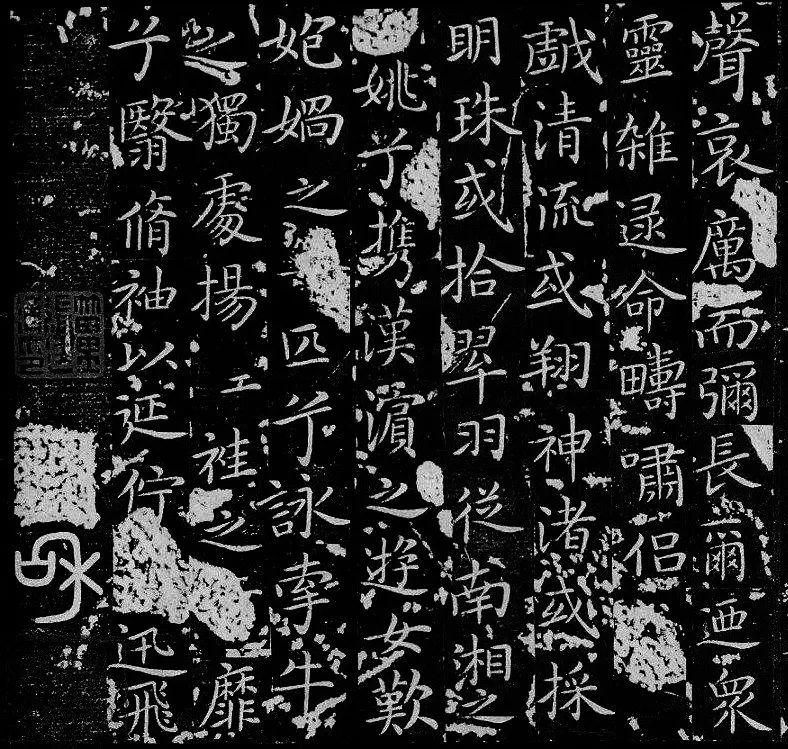 聲哀厲而彌長爾迺衆
靈雜遝命疇嘯侶
戲清流或翔神渚或採
明珠或拾翠羽從南湘之
姚兮攜漢濱之遊女歎
㚿媧之匹兮詠牽牛
之獨處揚袿之靡
兮翳脩袖以延佇迅飛